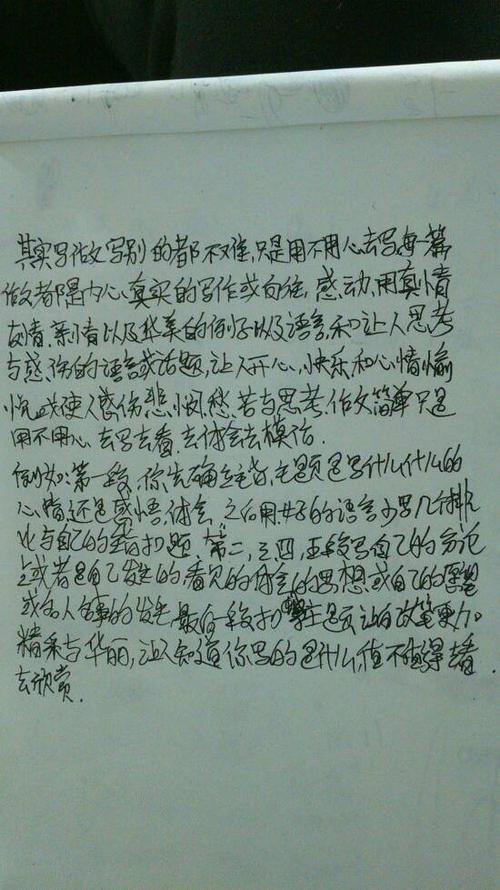 其实写作文写别的都不难,只是用不用心去写每一篇
作文都是内心真实的写作或向往,感动,用真情
友情.亲情以及华美的例子以及语言和让人思考
与感伤的语言或话题,让人开心、快乐和心情愉
悦或使人感伤悲悯.愁.苦与思考.作文简单只是
用不用心去写去看.去体会去模仿.
例如:第一段,你先确立主旨,主题是写什么什么的
心情,还是感悟.体会,之后用好的语言少写几个排
比与自己的 扣题,第二,三四,五段写自己的言论
或者是自己发生的看见的体会的思想或自己的
或名人故事的发生,最后一段扣 主题让的文章更加
精采与华丽,让人知道你写的是什么,值不值得去看
去欣赏.